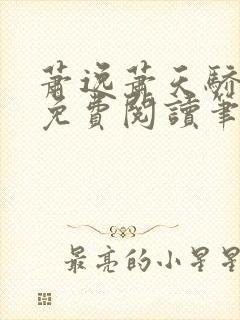 蕭逸蕭天驕
免費閱讀筆
最亮的小星星